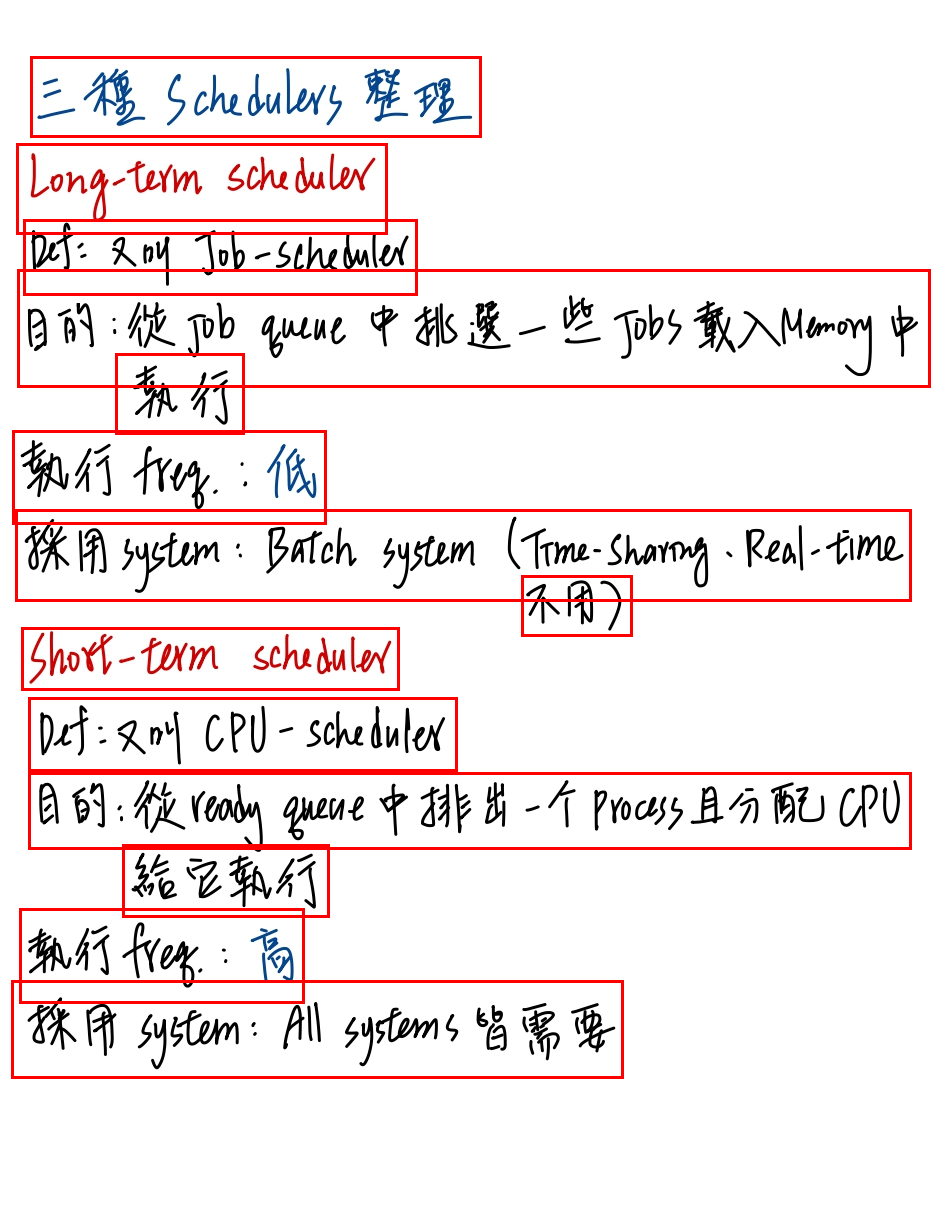 三種 Schedulers 整理
Long-term scheduler
Def: 又叫 Job-scheduler
目的:從 Job queue 中挑選一些 Jobs 載入Memory 中
執行
執行 freq. : 低
採用 system: Batch system (Time-sharing、Real-time
不用)
Short-term scheduler
Def:又叫 CPU-scheduler
目的:從 ready queue 中排出一个 process且分配 CPU
給它執行
執行 freq. : 高
採用 system: All systems 皆需要